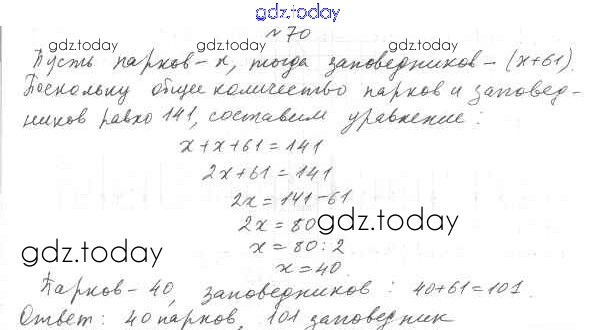 gdz.today
№ 70
gdz.today gdz.today gdz.today
Пусть парков - x, тогда заповедников - (x+61).
Поскольку общее количество парков и заповед-
ников равно 141, составим уравнение:
x + x + 61 = 141
2x + 61 = 141
2x = 141 - 61
2x = 80
gdz.today
x = 80 : 2
gdz.today
x = 40.
Парков - 40, заповедников : 40+61=101.
Ответ: 40 парков, 101 заповедник